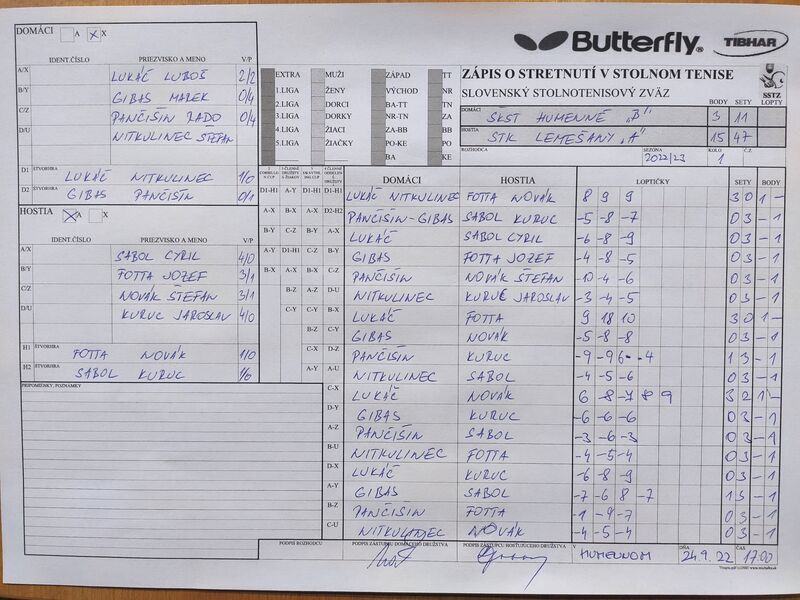 DOMÁCI A X X
Butterfly
TIBHAR
IDENT.ČÍSLO PRIEZVISKO A MENO V/P
A/X LUKÁČ LUBOŠ 2/2
B/Y GIBAS MAREK 0/4
C/Z PANČIŠIN RADO 0/4
D/U NITKULINEC STEFAN
D1 ŠTVORHRA LUKÁČ NITKULINEC 1/0
D2 GIBAS PANČIŠIN 0/1
HOSTIA X A X
IDENT.ČÍSLO PRIEZVISKO A MENO V/P
A/X SABOL CYRIL 4/0
B/Y FOTTA JOZEF 3/1
C/Z NOVÁK ŠTEFAN 3/1
D/U KURUC JAROSLAV 4/0
H1 ŠTVORHRA FOTTA NOVÁK
H2 ŠTVORHRA SABOL KURUC
PRIPOMIENKY, POZNÁMKY
EXTRA MUŽI ZÁPAD TT
1.LIGA ŽENY VÝCHOD NR
2.LIGA DORCI BA-TT TN
3.LIGA DORKY NR-TN ZA
4.LIGA ŽIACI ZA-BB BB
5.LIGA ŽIAČKY PO-KE PO
BA KE
ZÁPIS O STRETNUTÍ V STOLNOM TENISE
SLOVENSKÝ STOLNOTENISOVÝ ZVÄZ
SSTZ
BODY SETY LOPTY
DOMÁCI ŠKST HUMENNÉ „B" 3 11
HOSTIA STK LEMEŠANY „A" 15 47
ROZHODCA SEZÓNA 2022/23 KOLO 1 Č.Z.
DOMÁCI HOSTIA LOPTIČKY SETY BODY
D1-H1 A-Y D1-H1 D1-H1 LUKÁČ NITKULINEC FOTTA NOVÁK 8 9 9 3 0 1 -
A-X B-X A-X D2-H2 PANČIŠIN-GIBAS SABOL KURUC -5 -8 -7 0 3 - 1
B-Y C-Z C-Y A-X LUKÁČ SABOL CYRIL -6 -8 -9 0 3 - 1
A-Y D1-H1 C-Z B-Y GIBAS FOTTA JOZEF -4 -8 -5 0 3 - 1
B-X A-X B-X C-Z PANČIŠIN NOVÁK ŠTEFAN -10 -4 -6 0 3 - 1
B-Z A-Z D-U NITKULINEC KURUC JAROSLAV -3 -4 -5 0 3 - 1
C-Y C-Y B-X LUKÁČ FOTTA 9 18 10 3 0 1 -
B-Z C-Y GIBAS NOVÁK -5 -8 -8 0 3 - 1
C-X D-Z PANČIŠIN KURUC -9 -9 6 -4 1 3 - 1
A-Y A-U NITKULINEC SABOL -4 -5 -6 0 3 - 1
C-X LUKÁČ NOVÁK 6 -8 -7 8 9 3 2 1 -
D-Y GIBAS KURUC -6 -6 -6 0 3 - 1
A-Z PANČIŠIN SABOL -3 -6 -3 0 3 - 1
B-U NITKULINEC FOTTA -4 -5 -4 0 3 - 1
D-X LUKÁČ KURUC -6 -8 -9 0 3 - 1
A-Y GIBAS SABOL -7 -6 8 -7 1 3 - 1
B-Z PANČIŠIN FOTTA -1 -9 -7 0 3 - 1
C-U NITKULINEC NOVÁK -4 -5 -4 0 3 - 1
PODPIS ROZHODCU PODPIS ZÁSTUPCU DOMÁCEHO DRUŽSTVA PODPIS ZÁSTUPCU HOSŤUJÚCEHO DRUŽSTVA HUMENNOM DŇA 24.9.22 ČAS 17.00